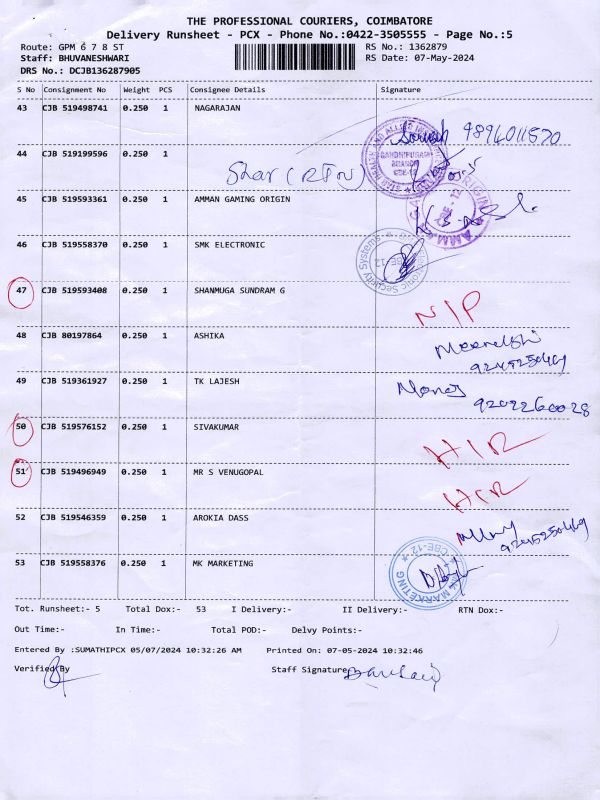 THE PROFESSIONAL COURIERS, COIMBATORE
Delivery Runsheet - PCX - Phone No.:0422-3505555 - Page No.:5
Route: GPM 6 7 8 ST RS No.: 1362879
Staff: BHUVANESHWARI RS Date: 07-May-2024
DRS No.: DCJB136287905
S No Consignment No Weight PCS Consignee Details Signature
43 CJB 519498741 0.250 1 NAGARAJAN
9894011570
44 CJB 519199596 0.250 1
Star (RTN)
45 CJB 519593361 0.250 1 AMMAN GAMING ORIGIN
46 CJB 519558370 0.250 1 SMK ELECTRONIC
47 CJB 519593408 0.250 1 SHANMUGA SUNDRAM G
N/P
48 CJB 80197864 0.250 1 ASHIKA
49 CJB 519361927 0.250 1 TK LAJESH
Manoj
9202260028
50 CJB 519576152 0.250 1 SIVAKUMAR
H/R
51 CJB 519496949 0.250 1 MR S VENUGOPAL
H/R
52 CJB 519546359 0.250 1 AROKIA DASS
53 CJB 519558376 0.250 1 MK MARKETING
MARKETING CBE-12
Tot. Runsheet:- 5 Total Dox:- 53 I Delivery:- II Delivery:- RTN Dox:-
Out Time:- In Time:- Total POD:- Delvy Points:-
Entered By :SUMATHIPCX 05/07/2024 10:32:26 AM Printed On: 07-05-2024 10:32:46
Verified By Staff Signature